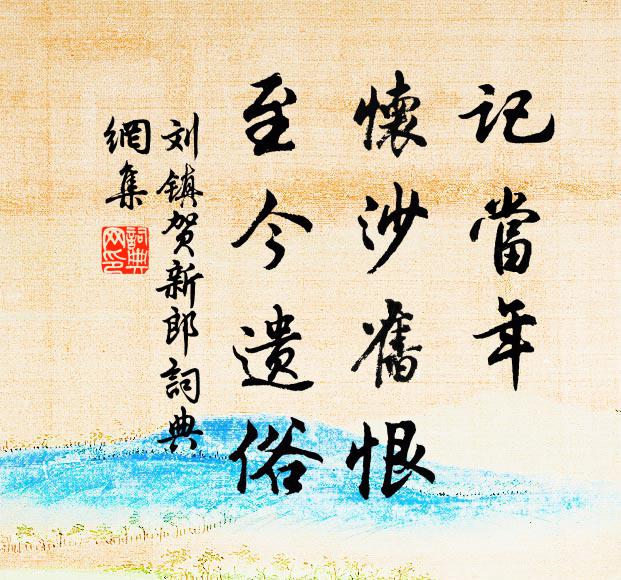 記當年
懷沙舊恨
至今遗俗
刘镇贺新郎詞典
網集
詞典
网印